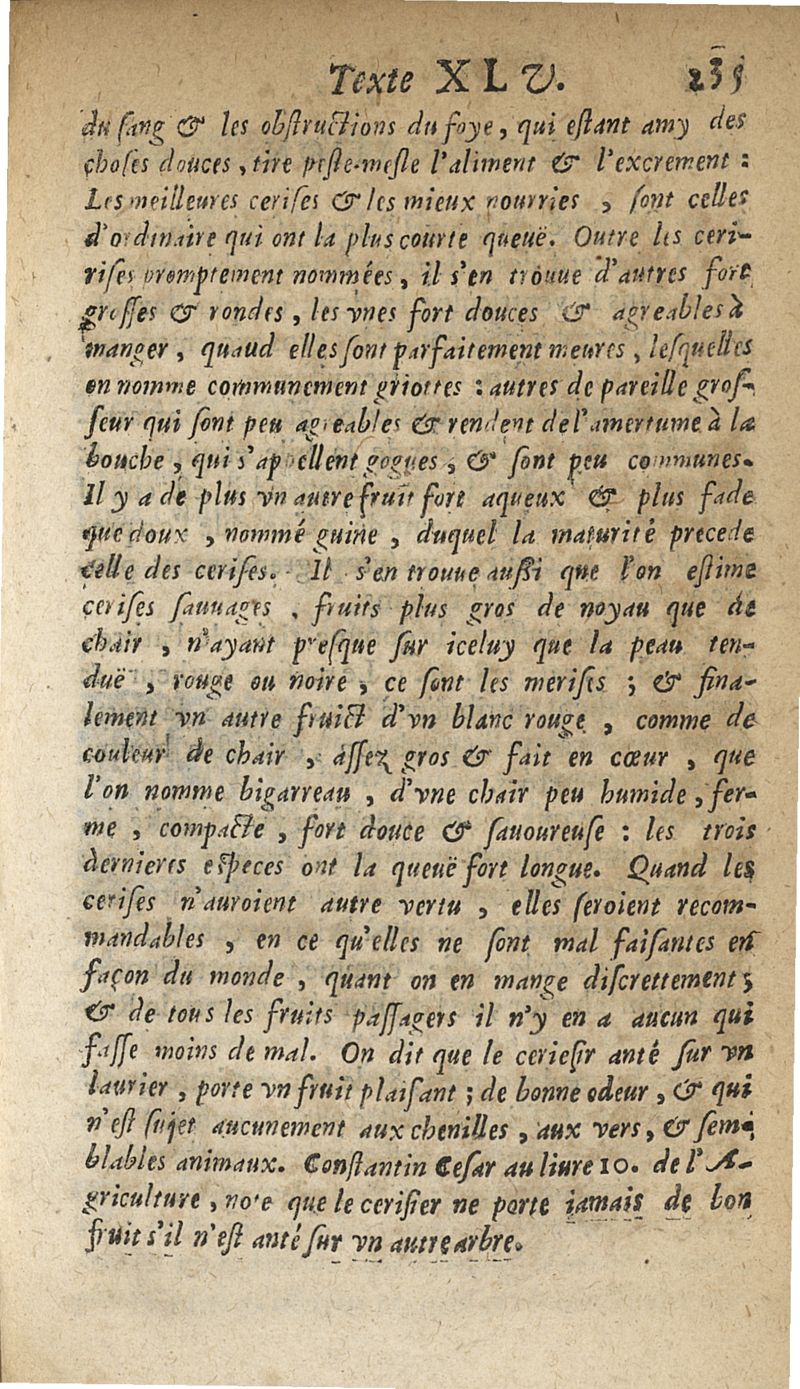 Texte XLV. 235
du sang & les obstructions du foye, qui estant amy des
choses douces, tire pesle-mesle l'aliment & l'excrement :
Les meilleures cerises & les mieux nourries, sont celles
d'ordinaire qui ont la plus courte queuë. Outre les ceri-
rises promptement nommées, il s'en trouue d'autres fort
grosses & rondes, les vnes fort douces & agreables à
manger, quaud elles sont parfaitement meures, lesquelles
on nomme communement griottes : autres de pareille gros-
seur qui sont peu agreables & rendent de l'amertume à la
bouche, qui s'appellent gogues, & sont peu communes.
Il y a de plus vn autre fruit fort aqueux & plus fade
que doux, nommé guine, duquel la maturité precede
celle des cerises. Il s'en trouue aussi que l'on estime
cerises sauuages, fruits plus gros de noyau que de
chair, n'ayant presque sur iceluy que la peau ten-
duë, rouge ou noire, ce sont les merises ; & fina-
lement vn autre fruict d'vn blanc rouge, comme de
couleur de chair, assez gros & fait en cœur, que
l'on nomme bigarreau, d'vne chair peu humide, fer-
me, compacte, fort douce & sauoureuse : les trois
dernieres especes ont la queuë fort longue. Quand les
cerises n'auroient autre vertu, elles seroient recom-
mandables, en ce qu'elles ne sont mal faisantes en
façon du monde, quant on en mange discrettement ;
& de tous les fruits passagers il n'y en a aucun qui
fasse moins de mal. On dit que le ceriesir anté sur vn
laurier, porte vn fruit plaisant ; de bonne odeur, & qui
n'est sujet aucunement aux chenilles, aux vers, & sem-
blables animaux. Constantin Cesar au liure 10. de l'A-
griculture, note que le cerisier ne porte iamais de bon
fruit s'il n'est anté sur vn autre arbre.